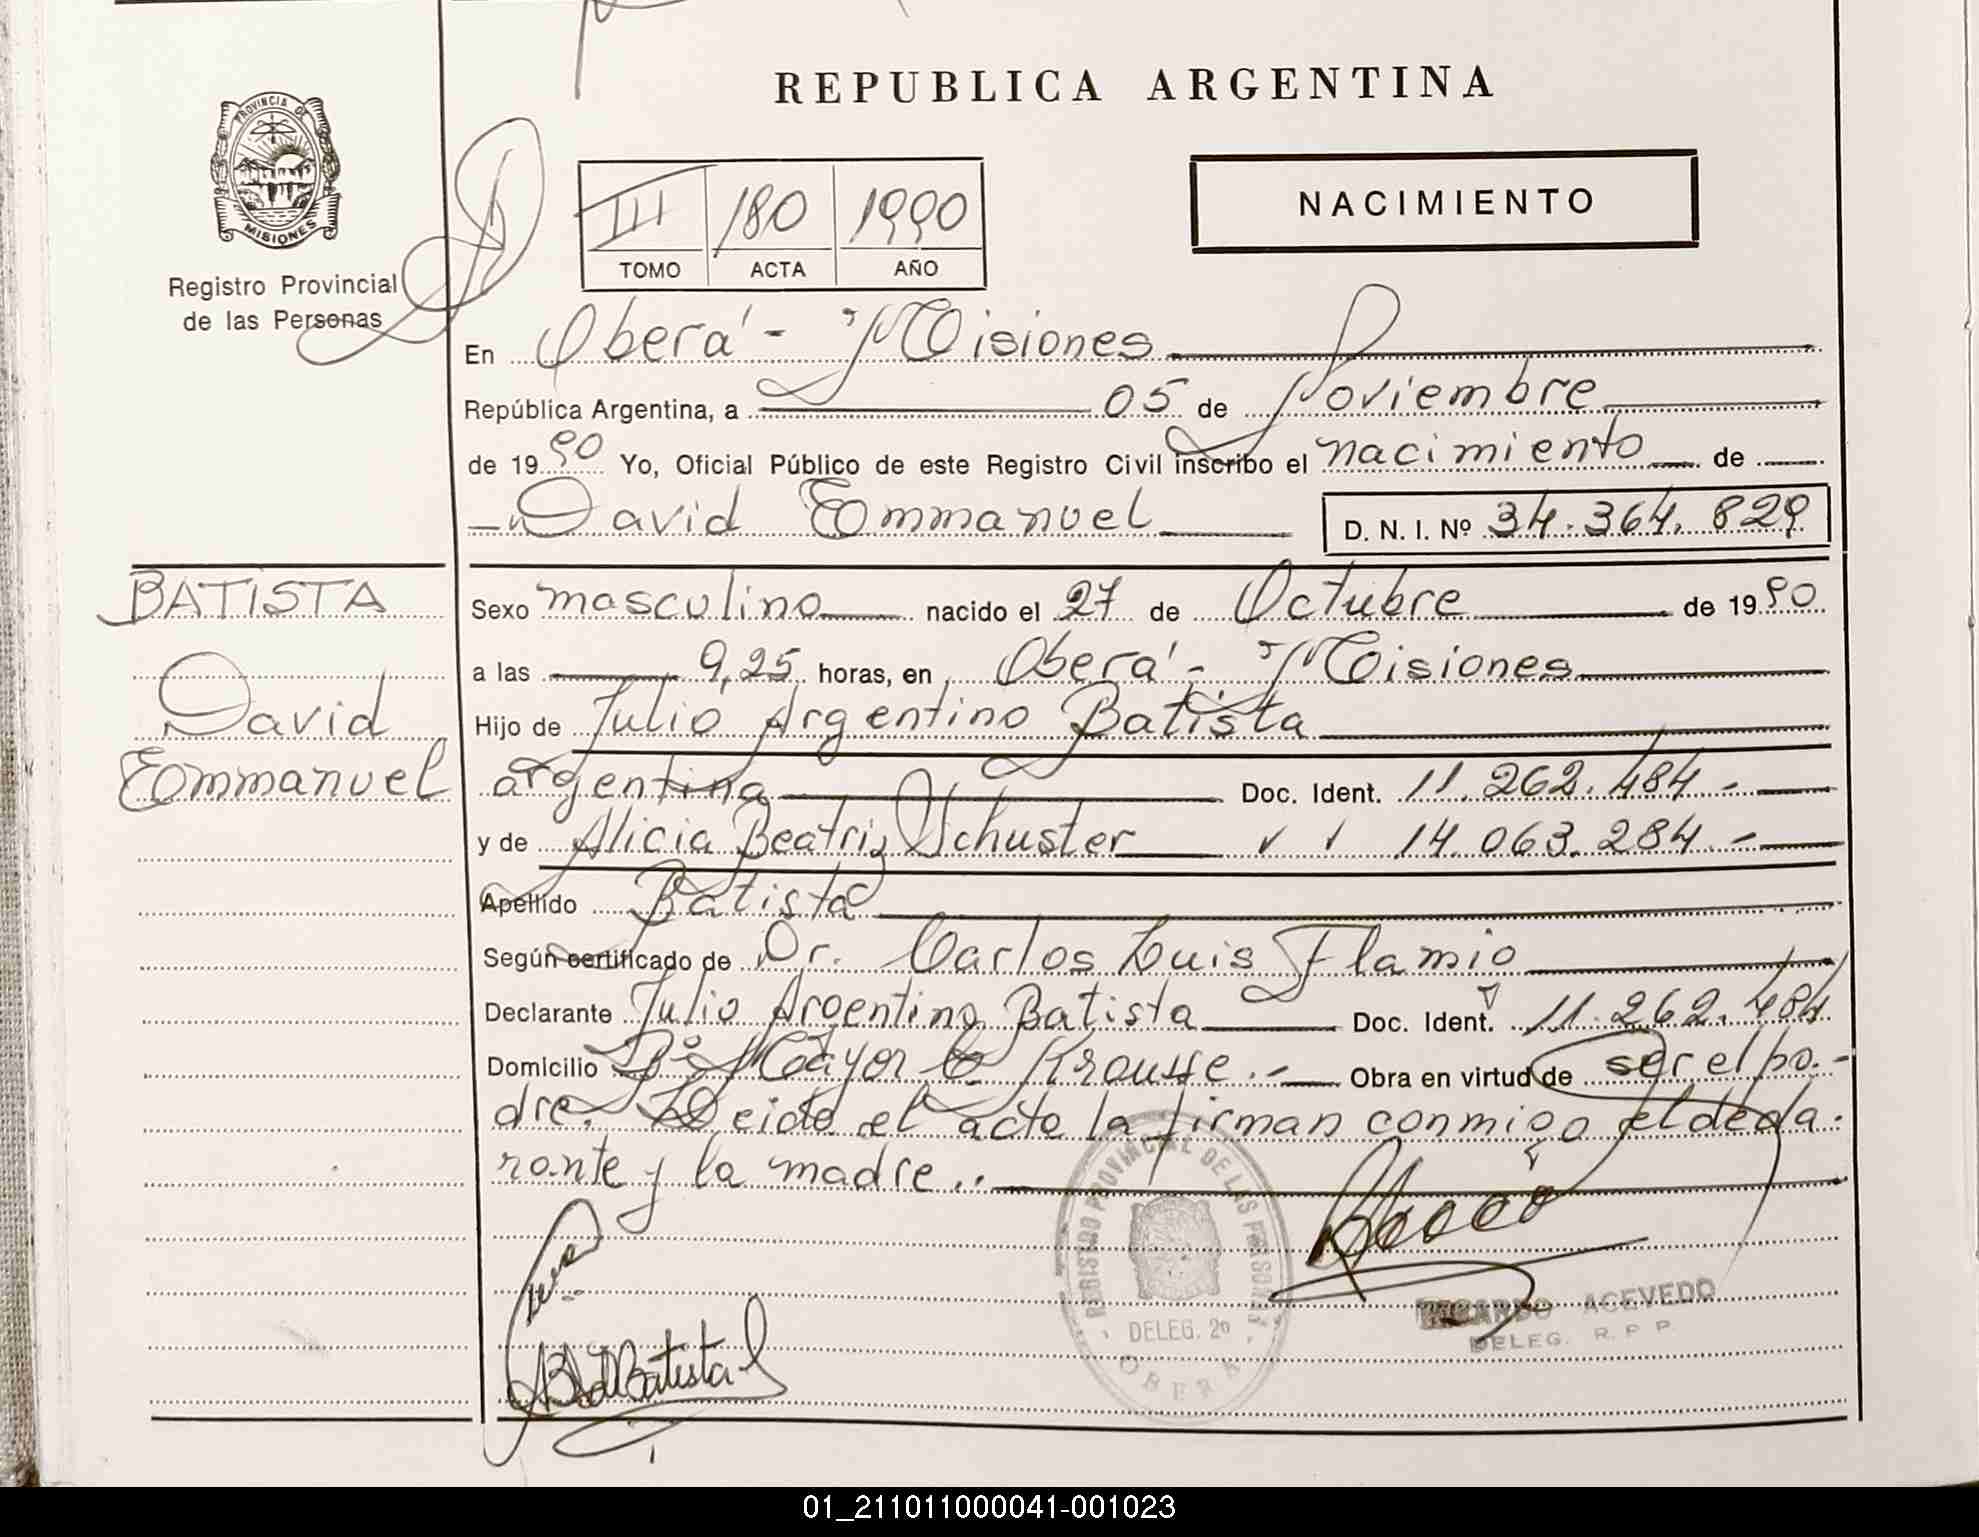 REPUBLICA ARGENTINA
PROVINCIA DE
MISIONES
Registro Provincial
de las Personas
III 180 1990
TOMO ACTA AÑO
NACIMIENTO
En Oberá - Misiones
República Argentina, a 05 de Noviembre
de 1990 Yo, Oficial Público de este Registro Civil inscribo el nacimiento de
David Emmanuel D. N. I. Nº 34.364.829
BATISTA
David
Emmanuel
Sexo masculino nacido el 27 de Octubre de 1990
a las 9,25 horas, en Oberá - Misiones
Hijo de Julio Argentino Batista
argentina Doc. Ident. 11.262.484.-
y de Alicia Beatriz Schuster 14.063.284.-
Apellido Batista
Según certificado de Dr. Carlos Luis Flamio
Declarante Julio Argentino Batista Doc. Ident. 11.262.484
Domicilio Bº Mayor Krausse.- Obra en virtud de ser el pa-
dre. Leida el acta la firman conmigo el decla-
rante y la madre..
REGISTRO PROVINCIAL DE LAS PERSONAS
DELEG. 2º
OBERA
Batista
RICARDO ACEVEDO
DELEG. R. P. P.
01_211011000041-001023